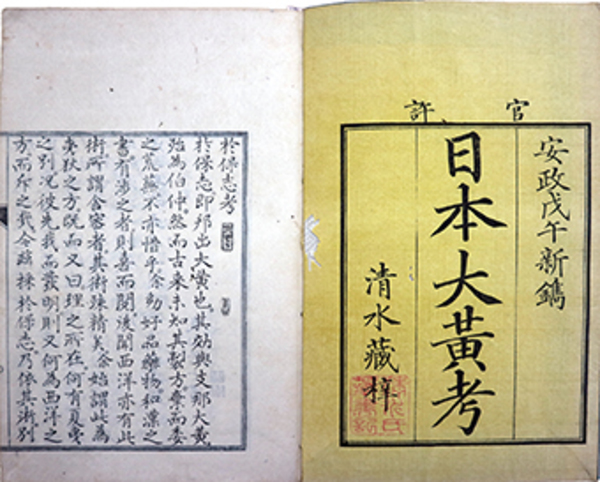 官許
安政戊午新鐫
日本大黃考
清水藏梓
於保志考
於保志即邦出大黃也其効與支那大黃
殆為伯仲然而古来未知其製方棄而委
之荒蕪不亦惜乎余幼好品藥物和漢之
書有涉之者則喜而閱後閱西洋亦有此
術所謂舍密者其術殊精美余始謂此為
夷狄之方既而又曰理之所在何有夏夷
之別況彼先我而發明則又何為西洋之
方而斥之哉今採於保志乃依其術別